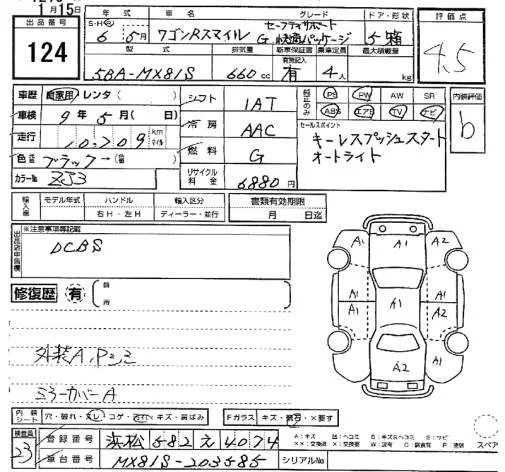 1月15日
出品番号 124
年式 S・H 6年 5月
車名 ワゴンRスマイル
グレード セーフティサポート G 快適パッケージ
ドア・形状 5 箱
型式 5BA-MX81S
排気量 660cc
新車保証書 有
乗車定員 4人
最大積載量 kg
評価点 4.5
車歴 自家用 レンタ ( )
車検 9年5月( 日)
走行 10,709 km マイル
色 ブラック→(番 )
カラーNo ZJ3
シフト IAT
冷房 AAC
燃料 G
リサイクル料金 6880円
純正のみ PS PW AW SR
ABS エアB TV ナビ
セールスポイント
キーレスプッシュスタート
オートライト
内装評価 b
輸入車 モデル年式 ハンドル 輸入区分
年 右H・左H ディーラー・並行
書類有効期限
月 日迄
出品店申告欄 ※注意事項等記載
DCBS
修復歴 有 箇所
外装A,Pコミ
ミラーカバーA
A1 A1 A2
A1 A1 A1
A2
A1 A2 A2
内装シート 穴・破れ・スレ・コゲ・汚れ・キズ・黄ばみ
Fガラス キズ・飛石・×要す
A:キズ U:ヘコミ B:キズ&ヘコミ S:サビ
××:交換済 ×:要交換 W:波有 C:腐食有 P:塗装
スペア
検査員 23
登録番号 浜松 582 え 4074
車台番号 MX81S-203585
シリアルNo